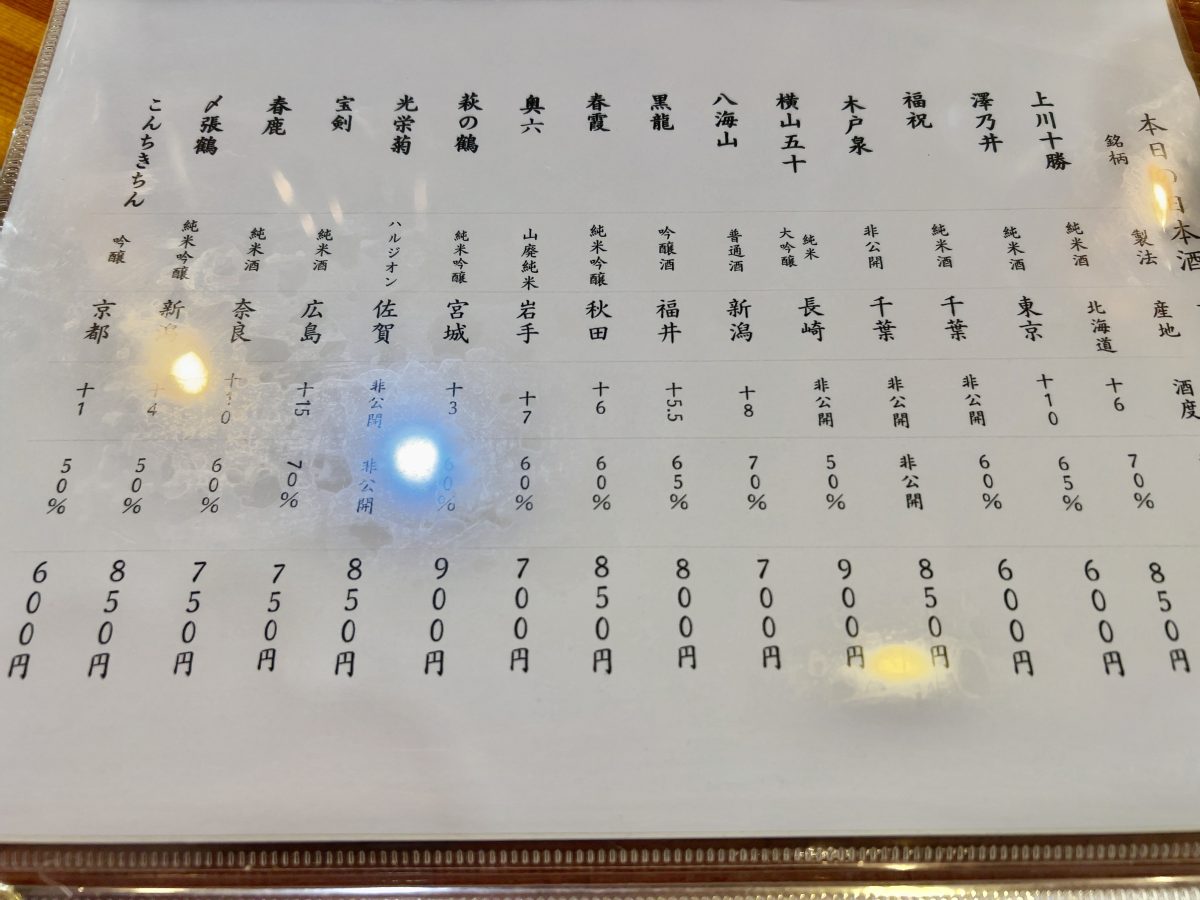 本日の日本酒
銘柄 製法 産地 酒度
上川十勝 純米酒 北海道 +6 70% 850円
澤乃井 純米酒 東京 +10 65% 600円
福祝 純米酒 千葉 非公開 60% 600円
木戸泉 非公開 千葉 非公開 非公開 850円
横山五十 純米大吟醸 長崎 非公開 50% 900円
八海山 普通酒 新潟 +8 70% 700円
黒龍 吟醸酒 福井 +5.5 65% 800円
春霞 純米吟醸 秋田 +6 60% 850円
奥六 山廃純米 岩手 +7 60% 700円
萩の鶴 純米吟醸 宮城 +3 60% 900円
光栄菊 ハルジオン 佐賀 非公開 非公開 850円
宝剣 純米酒 広島 +15 70% 750円
春鹿 純米酒 奈良 60% 750円
〆張鶴 純米吟醸 新潟 +4 50% 850円
こんちきちん 吟醸 京都 +1 50% 600円